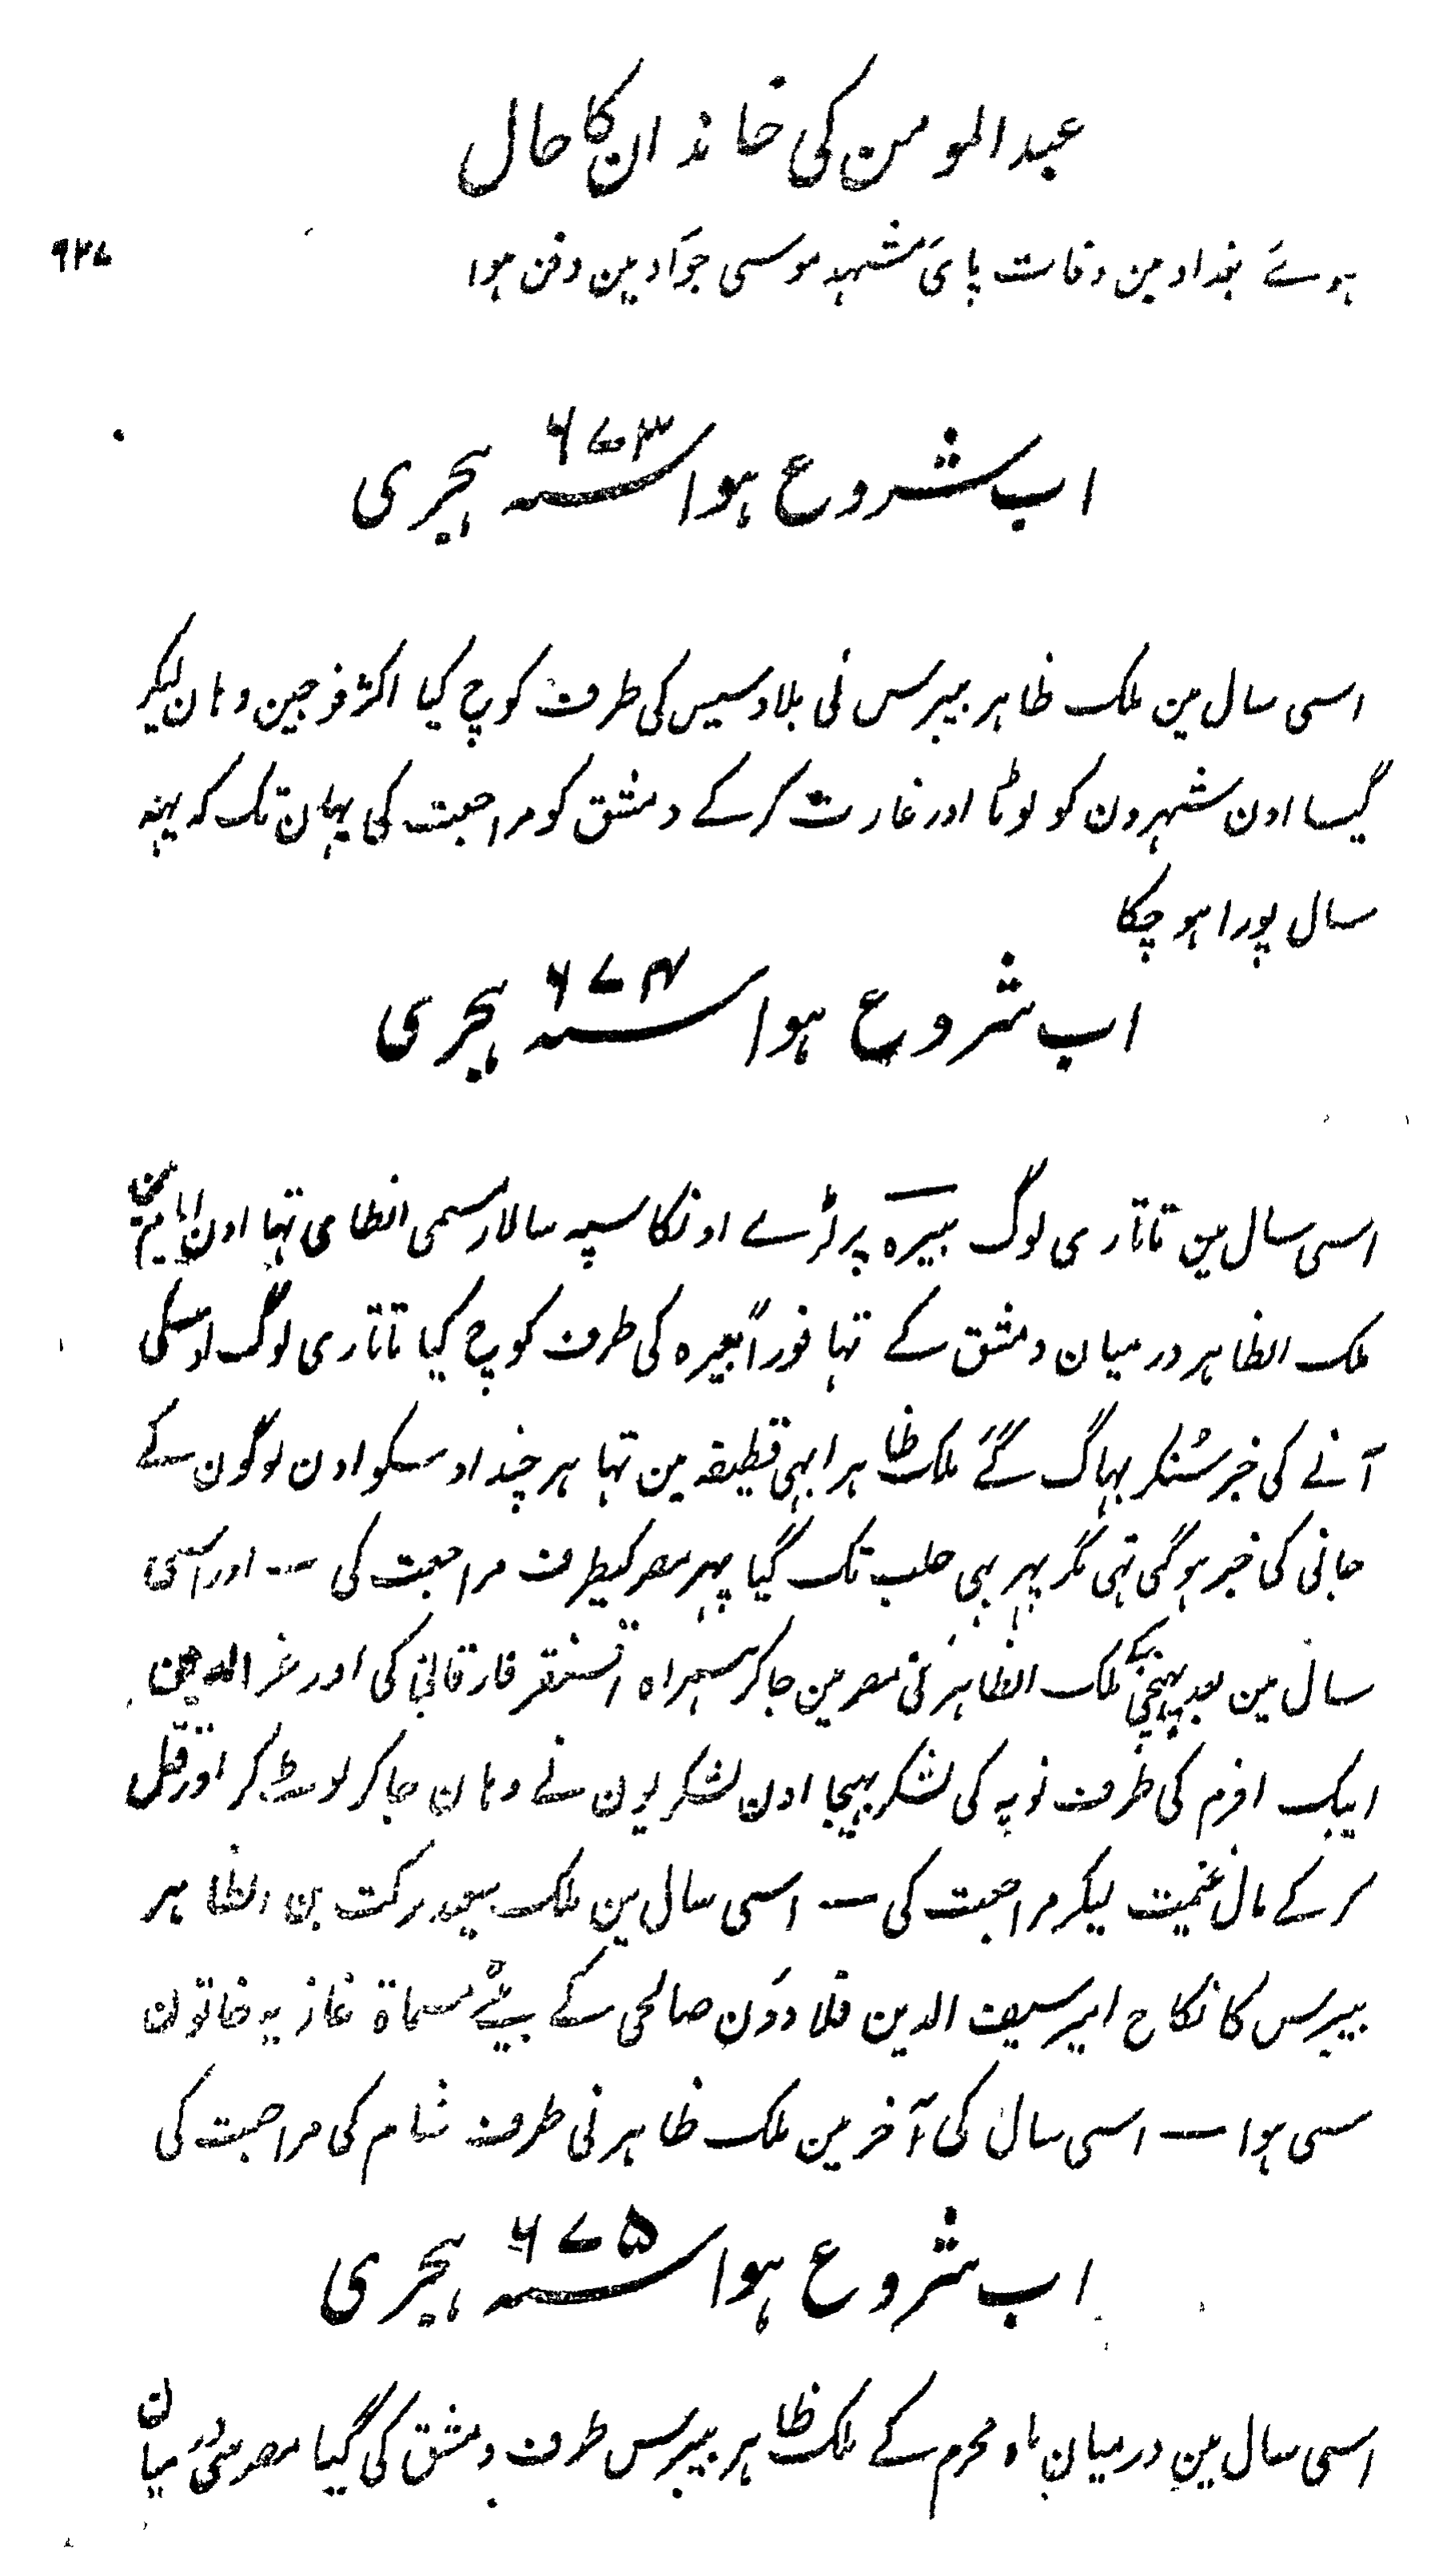 عبدالمومن کی خاندان کا حال
۹۲۷
ہوئے بغداد مین وفات پائ مشہد موسی جوادین دفن ہوا
اب شروع ہوا سنہ ۶۷۳ ہجری
اسی سال مین ملک ظاہر بیبرس نی بلاد سیس کی طرف کوچ کیا اکثر فوجین وہان لیکر
گیا اون شہرون کو لوٹا اور غارت کرکے دمشق کو مراجعت کی یہان تک کہ یہہ
سال پورا ہو چکا
اب شروع ہوا سنہ ۶۷۴ ہجری
اسی سال مین تاتاری لوگ بیرہ پر لڑے اونکا سپہ سالار مسمی انطامی تہا اون ایام مین
ملک الظاہر درمیان دمشق کے تہا فوراً بیرہ کی طرف کوچ کیا تاتاری لوگ اوسکی
آنے کی خبر سُنکر بہاگ گئے ملک ظاہر ابہی قطیفہ مین تہا ہر چند اوسکو اون لوگون کے
جانی کی خبر ہوگی تہی مگر پہر بہی حلب تک گیا پہر مصر کیطرف مراجعت کی ــ اور اسی
سال مین بعد پہنچنیکے ملک الظاہر نی مصر مین جاکر ہمراہ اقسنقر فارقانی کی اور عز الدین
ایبک افرم کی طرف نوبہ کی لشکر بہیجا اون لشکریون نے وہان جاکر لوٹ کر اور قتل
کرکے مال غنیمت لیکر مراجعت کی ــ اسی سال مین ملک سعید برکت بن الظاہر
بیبرس کا نکاح امیر سیف الدین قلادون صالحی کے بیٹے مسماۃ غازیہ خاتون
سی ہوا ــ اسی سال کی آخر مین ملک ظاہر نی طرف شام کی مراجعت کی
اب شروع ہوا سنہ ۶۷۵ ہجری
اسی سال مین درمیان ماہ محرم کے ملک ظاہر بیبرس طرف دمشق کی گیا مصر سی درمیان